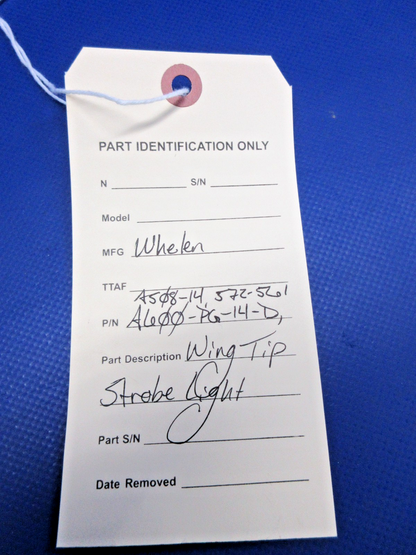 PART IDENTIFICATION ONLY
N S/N
Model
MFG Whelen
TTAF
A508-14, 572-5261
P/N A600-PG-14-D,
Part Description Wing Tip
Strobe Light
Part S/N
Date Removed